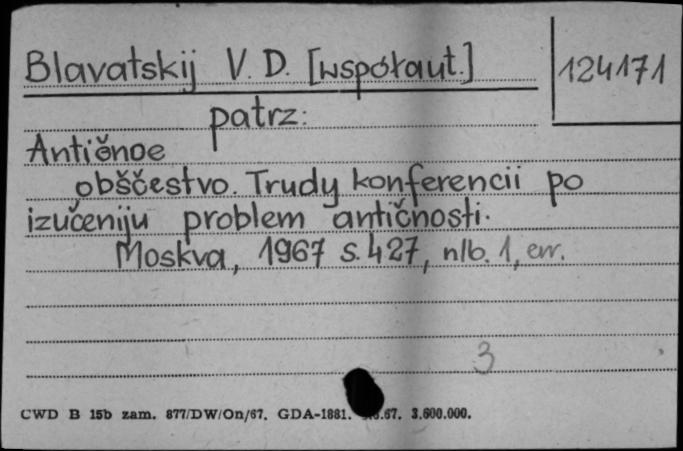 Blavatskij V. D. [współaut.]
124171
patrz:
Antičnoe
obščestvo. Trudy konferencii po
izučeniju problem antičnosti.
Moskva, 1967 s. 427, nlb. 1, err.
3
CWD B 15b zam. 877/DW/On/67. GDA-1881. .67. 3.600.000.